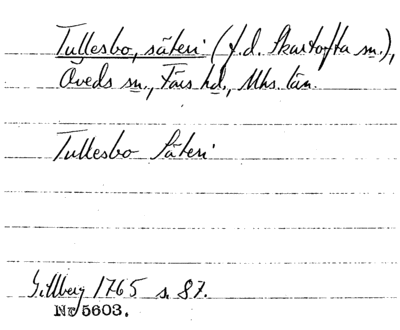 Tullesbo, säteri (f.d. Skartofta sn.),
Öveds sn., Färs hd., Mhs. län.
Tullesbo Säteri
Gillberg 1765 s. 87.
Nr 5603.